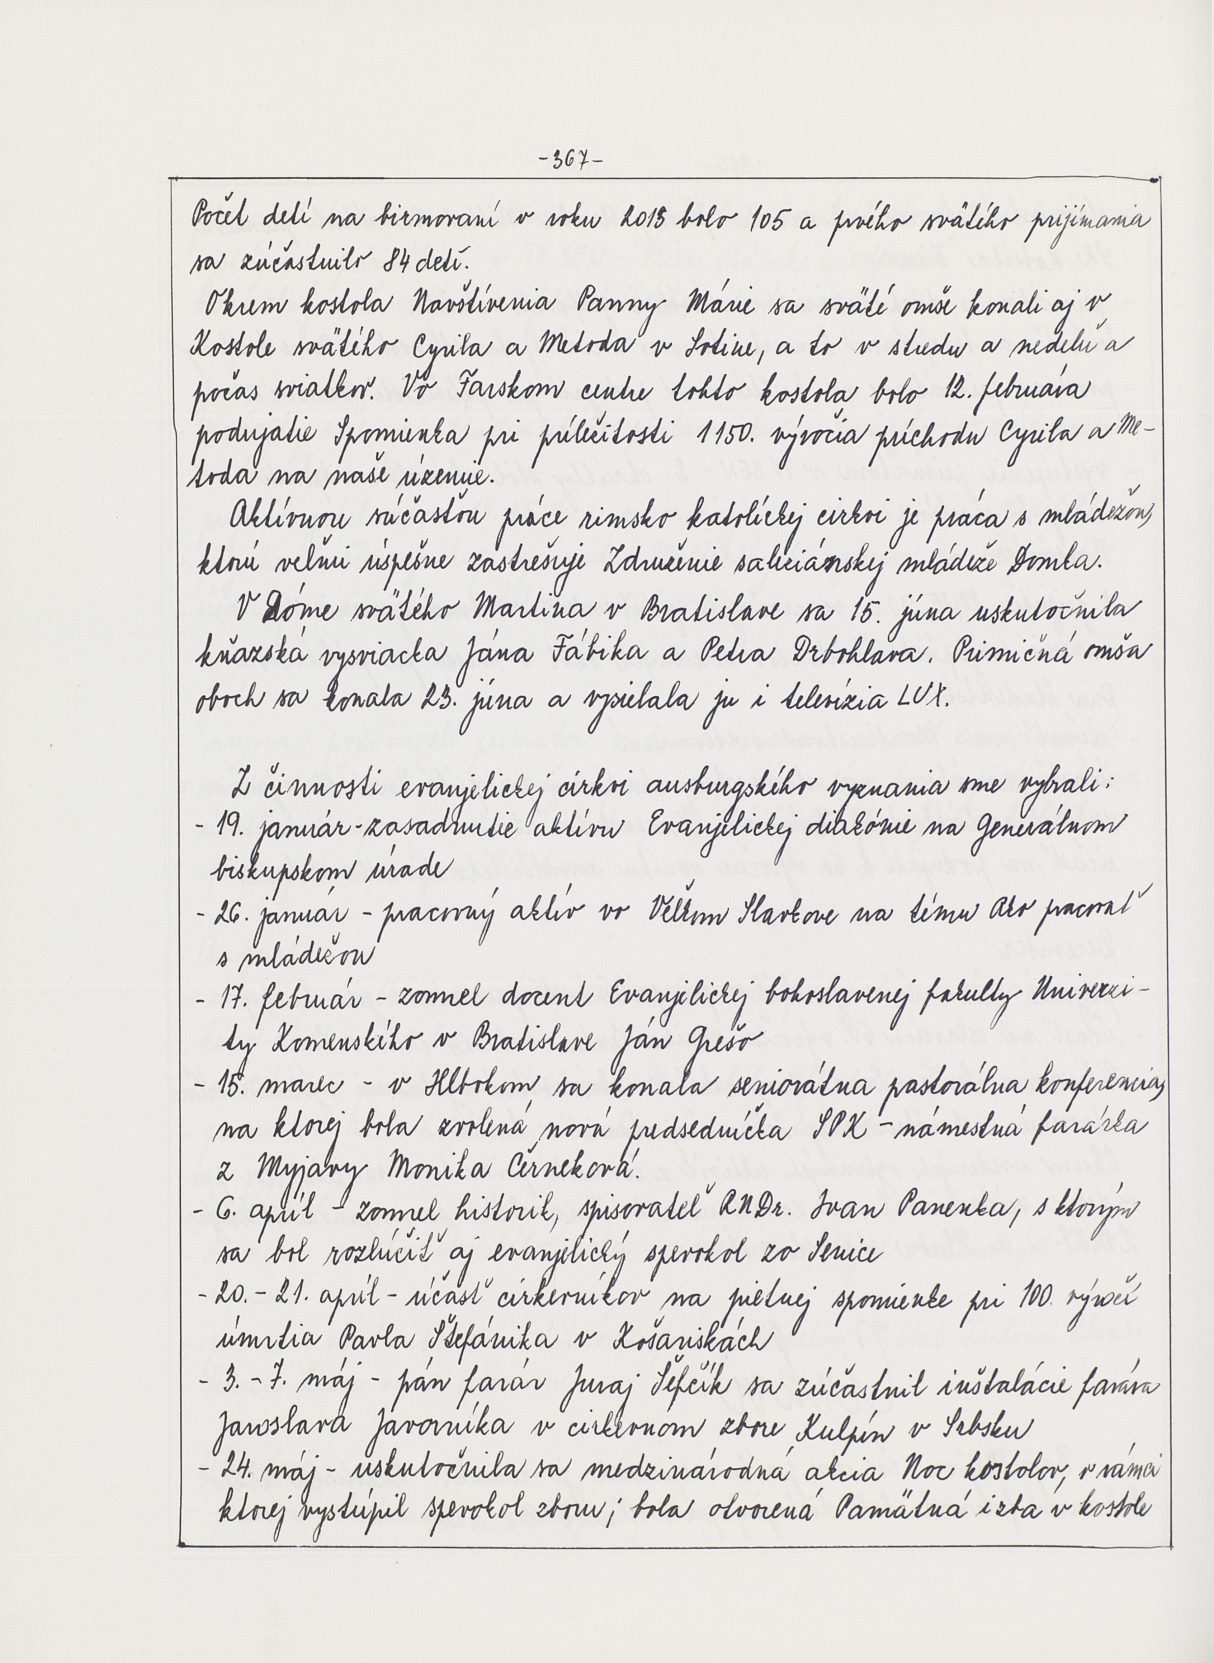 -367-
Počet detí na birmovaní v roku 2013 bolo 105 a prvého svätého prijímania
sa zúčastnilo 84 detí.
Okrem kostola Navštívenia Panny Márie sa sväté omše konali aj v
Kostole svätého Cyrila a Metoda v Sotine, a to v stredu a nedeľu a
počas sviatkov. Vo Farskom centre tohto kostola bolo 12. februára
podujatie Spomienka pri príležitosti 1150. výročia príchodu Cyrila a Me-
toda na naše územie.
Aktívnou súčasťou práce rimsko katolíckej cirkvi je práca s mládežou,
ktorú veľmi úspešne zastrešuje Združenie saleziánskej mládeže Domka.
V Dóme svätého Martina v Bratislave sa 15. júna uskutočnila
kňazská vysviacka Jána Fábika a Petra Drbohlava. Primičná omša
oboch sa konala 23. júna a vysielala ju i televízia LUX.
Z činnosti evanjelickej cirkvi ausburgského vyznania sme vybrali:
- 19. január - zasadnutie aktívu Evanjelickej diakónie na Generálnom
biskupskom úrade
- 26. január - pracovný aktív vo Veľkom Slavkove na tému Ako pracovať
s mládežou
- 17. február - zomrel docent Evanjelickej bohoslaveckej fakulty Univerzi-
ty Komenského v Bratislave Ján Grešo
- 15. marec - v Hlbokom sa konala seniorátna pastorálna konferencia,
na ktorej bola zvolená nová predsedníčka SPK - námestná farárka
z Myjavy Monika Černeková.
- 6. apríl - zomrel historik, spisovateľ RNDr. Ivan Panenka, s ktorým
sa bol rozlúčiť aj evanjelický spevokol zo Senice
- 20. - 21. apríl - účasť cirkevníkov na pietnej spomienke pri 100. výročí
úmrtia Pavla Štefánika v Košariskách
- 3. - 7. máj - pán farár Juraj Šefčík sa zúčastnil inštalácie farára
Jaroslava Javorníka v cirkevnom zbore Kulpín v Srbsku
- 24. máj - uskutočnila sa medzinárodná akcia Noc kostolov, v rámci
ktorej vystúpil spevokol zboru; bola otvorená Pamätná izba v kostole